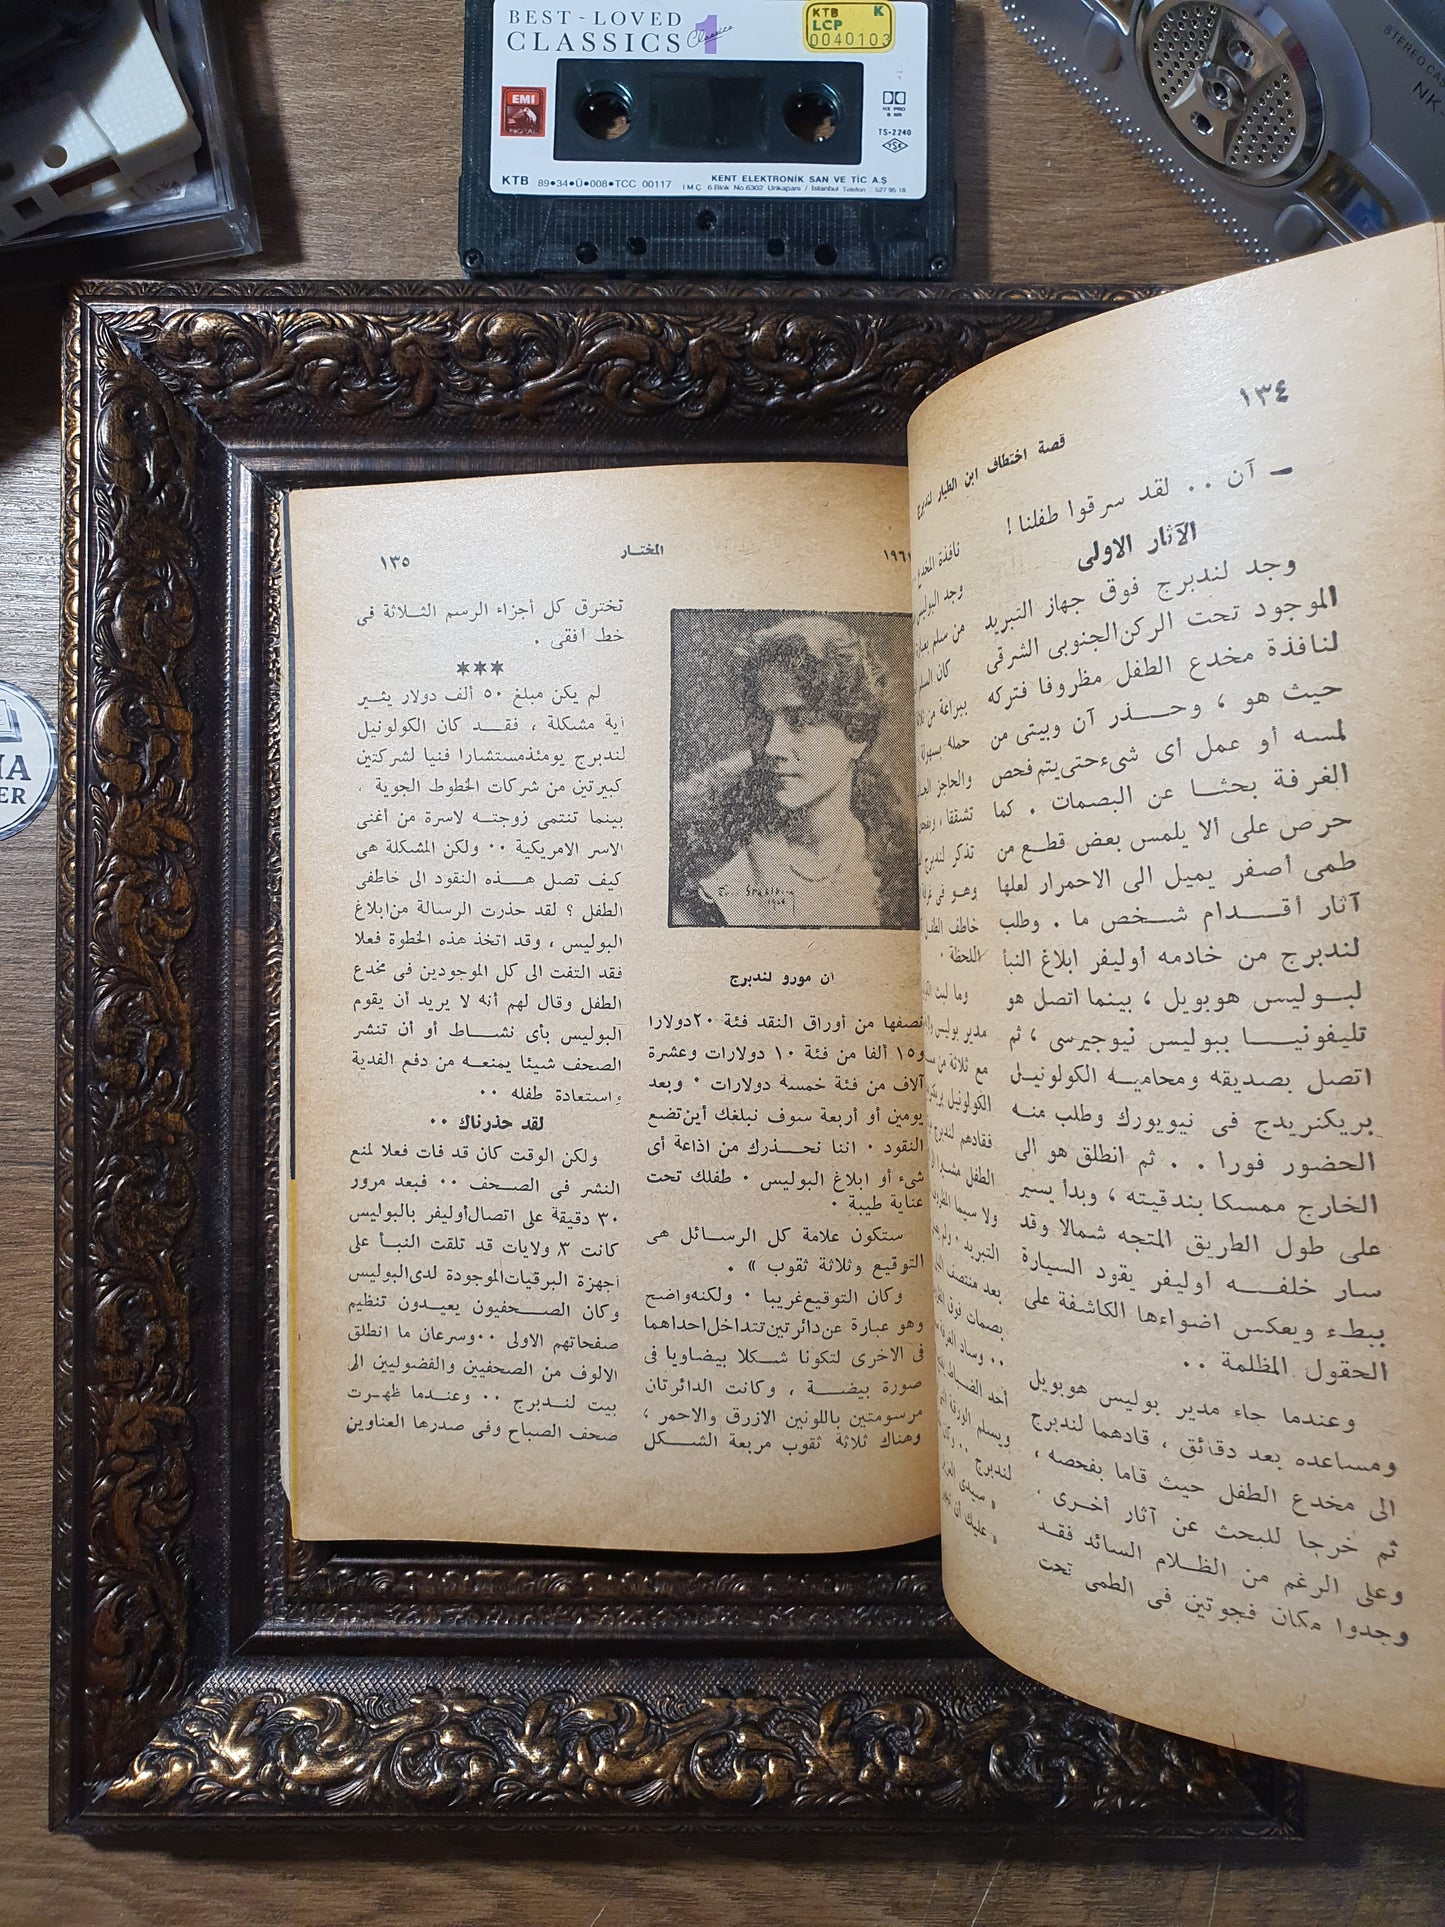 BEST ~ LOVED
CLASSICS
Classics
1
KTB K
LCP
0040103
EMI
DIGITAL
HX PRO
B NR
TS-2240
TSE
KENT ELEKTRONIK SAN VE TİC A.Ş
KTB 89•34•Ü•008•TCC 00117
I.M.Ç. 6.Blok No.6302 Unkapanı / İstanbul Telefon 527 95 18
STEREO
NK
١٣٤
قصة اختطاف ابن الطيار لندبرج
— آن .. لقد سرقوا طفلنا !
الآثار الاولى
وجد لندبرج فوق جهاز التبريد
الموجود تحت الركن الجنوبى الشرقى
لنافذة مخدع الطفل مظروفا فتركه
حيث هو ، وحذر آن وبيتى من
لمسه أو عمل أى شىء حتى يتم فحص
الغرفة بحثا عن البصمات . كما
حرص على ألا يلمس بعض قطع من
طمى أصفر يميل الى الاحمرار لعلها
آثار أقدام شخص ما . وطلب
لندبرج من خادمه أوليفر ابلاغ النبأ
لبوليس هوبويل ، بينما اتصل هو
تليفونيا ببوليس نيوجيرسى ، ثم
اتصل بصديقه ومحاميه الكولونيل
بريكنريدج فى نيويورك وطلب منه
الحضور فورا . . ثم انطلق هو الى
الخارج ممسكا بندقيته ، وبدأ يسير
على طول الطريق المتجه شمالا وقد
سار خلفه أوليفر يقود السيارة
ببطء ويعكس اضواءها الكاشفة على
الحقول المظلمة ..
وعندما جاء مدير بوليس هوبويل
ومساعده بعد دقائق ، قادهما لندبرج
الى مخدع الطفل حيث قاما بفحصه ،
ثم خرجا للبحث عن آثار أخرى .
وعلى الرغم من الظلام السائد فقد
وجدوا مكان فجوتين فى الطمى تحت
نافذة المخدع
وجد البوليس
من سلم
كان السلم
ببراعة من
حمله بسهولة
والحاجز
تشققا ،
تذكر لندبرج
وهو فى
خاطف الطفل
اللحظة .
وما لبث
مدير بوليس
مع ثلاثة من
الكولونيل
فقادهم لندبرج
الطفل مشيرا
ولا سيما
التبريد .
بعد منتصف
بصمات فوق
.. وساد الغرفة
أحد
ويسلم الورقة
لندبرج ..
« سيدى
« عليك أن
المختار
١٣٥
آن مورو لندبرج
نصفها من أوراق النقد فئة ٢٠ دولارا
و١٥ ألفا من فئة ١٠ دولارات وعشرة
آلاف من فئة خمسة دولارات . وبعد
يومين أو أربعة سوف نبلغك أين تضع
النقود . اننا نحذرك من اذاعة أى
شىء أو ابلاغ البوليس . طفلك تحت
عناية طيبة .
ستكون علامة كل الرسائل هى
التوقيع وثلاثة ثقوب » .
وكان التوقيع غريبا . ولكنه واضح
وهو عبارة عن دائرتين تتداخل احداهما
فى الاخرى لتكونا شكلا بيضاويا فى
صورة بيضة ، وكانت الدائرتان
مرسومتين باللونين الازرق والاحمر ،
وهناك ثلاثة ثقوب مربعة الشكل
تخترق كل أجزاء الرسم الثلاثة فى
خط أفقى .
***
لم يكن مبلغ ٥٠ ألف دولار يثير
أية مشكلة ، فقد كان الكولونيل
لندبرج يومئذ مستشارا فنيا لشركتين
كبيرتين من شركات الخطوط الجوية ،
بينما تنتمى زوجته لاسرة من أغنى
الاسر الامريكية .. ولكن المشكلة هى
كيف تصل هذه النقود الى خاطفى
الطفل ؟ لقد حذرت الرسالة من ابلاغ
البوليس ، وقد اتخذ هذه الخطوة فعلا
فقد التفت الى كل الموجودين فى مخدع
الطفل وقال لهم أنه لا يريد أن يقوم
البوليس بأى نشاط أو أن تنشر
الصحف شيئا يمنعه من دفع الفدية
واستعادة طفله ..
لقد حذرناك ..
ولكن الوقت كان قد فات فعلا لمنع
النشر فى الصحف .. فبعد مرور
٣٠ دقيقة على اتصال أوليفر بالبوليس
كانت ٣ ولايات قد تلقت النبأ على
أجهزة البرقيات الموجودة لدى البوليس
وكان الصحفيون يعيدون تنظيم
صفحاتهم الاولى .. وسرعان ما انطلق
الالوف من الصحفيين والفضوليين الى
بيت لندبرج .. وعندما ظهرت
صحف الصباح وفى صدرها العناوين